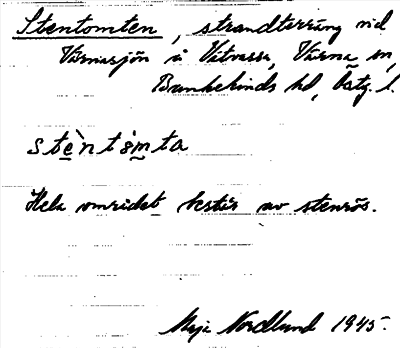 Stentomten, strandterräng vid
Värnasjön i Vitvassa, Värna sn,
Bankekinds hd, Östg. l.
stèntómta
Hela området består av stenrös.
Maja Nordlund 1945.